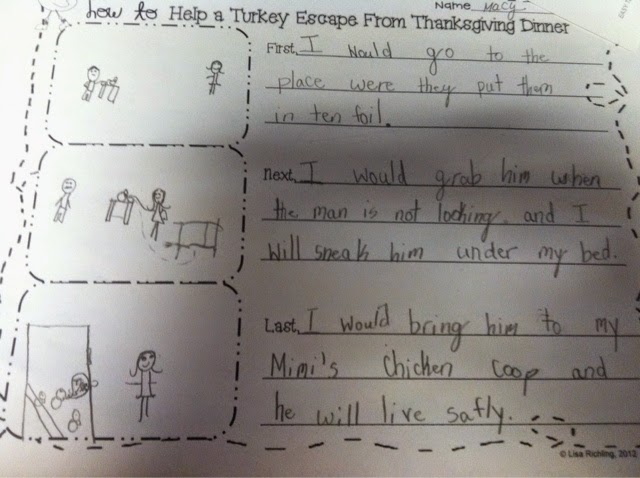 Name Macy
how to Help a Turkey Escape From Thanksgiving Dinner
First, I would go to the
place were they put them
in ten foil.
Next, I would grab him when
the man is not locking. and I
Will sneak him under my bed.
Last, I would bring him to my
Mimi's Chicken Coop and
he will live safly.
© Lisa Richling, 2012